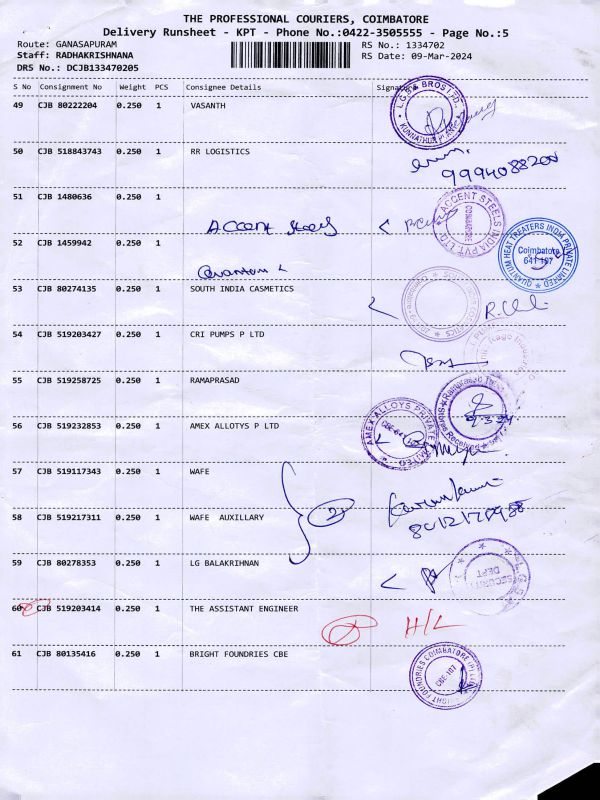 THE PROFESSIONAL COURIERS, COIMBATORE
Delivery Runsheet - KPT - Phone No.:0422-3505555 - Page No.:5
Route: GANASAPURAM
RS No.: 1334702
Staff: RADHAKRISHNANA
RS Date: 09-Mar-2024
DRS No.: DCJB133470205
S No Consignment No Weight PCS Consignee Details Signature
49 CJB 80222204 0.250 1 VASANTH
50 CJB 518843743 0.250 1 RR LOGISTICS
9994088200
51 CJB 1480636 0.250 1
Accent Steels
ACCENT STEELS INDIA PVT LTD
COIMBATORE
52 CJB 1459942 0.250 1
Quantum
QUANTUM HEAT TREATERS INDIA PRIVATE LIMITED
Coimbatore
641 107
53 CJB 80274135 0.250 1 SOUTH INDIA CASMETICS
54 CJB 519203427 0.250 1 CRI PUMPS P LTD
55 CJB 519258725 0.250 1 RAMAPRASAD
9.3.24
56 CJB 519232853 0.250 1 AMEX ALLOTYS P LTD
AMEX ALLOYS PRIVATE LIMITED
57 CJB 519117343 0.250 1 WAFE
2
58 CJB 519217311 0.250 1 WAFE AUXILLARY
59 CJB 80278353 0.250 1 LG BALAKRIHNAN
SECURITY
DEPT
60 CJB 519203414 0.250 1 THE ASSISTANT ENGINEER
H/L
61 CJB 80135416 0.250 1 BRIGHT FOUNDRIES CBE
BRIGHT FOUNDRIES COIMBATORE (P) LTD
CBE-107